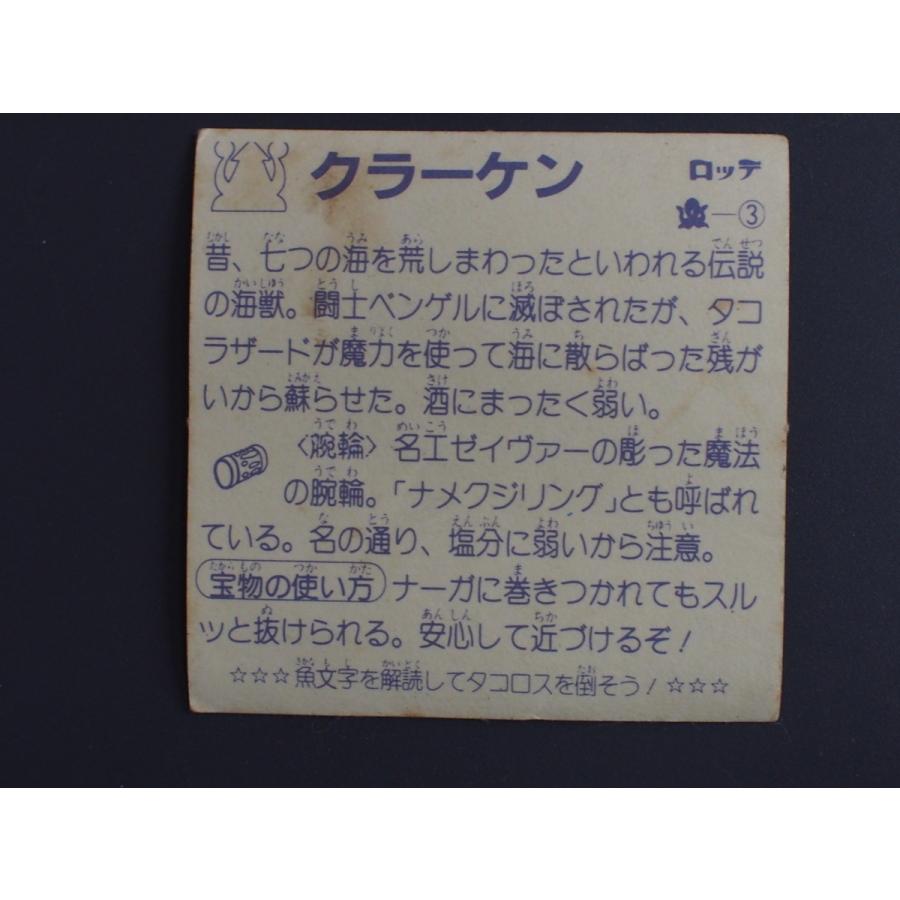 クラーケン ロッテ
－③
昔、七つの海を荒しまわったといわれる伝説
の海獣。闘士ベンゲルに滅ぼされたが、タコ
ラザードが魔力を使って海に散らばった残が
いから蘇らせた。酒にまったく弱い。
〈腕輪〉名工ゼイヴァーの彫った魔法
の腕輪。「ナメクジリング」とも呼ばれ
ている。名の通り、塩分に弱いから注意。
宝物の使い方 ナーガに巻きつかれてもスル
ッと抜けられる。安心して近づけるぞ！
☆☆☆魚文字を解読してタコロスを倒そう！☆☆☆